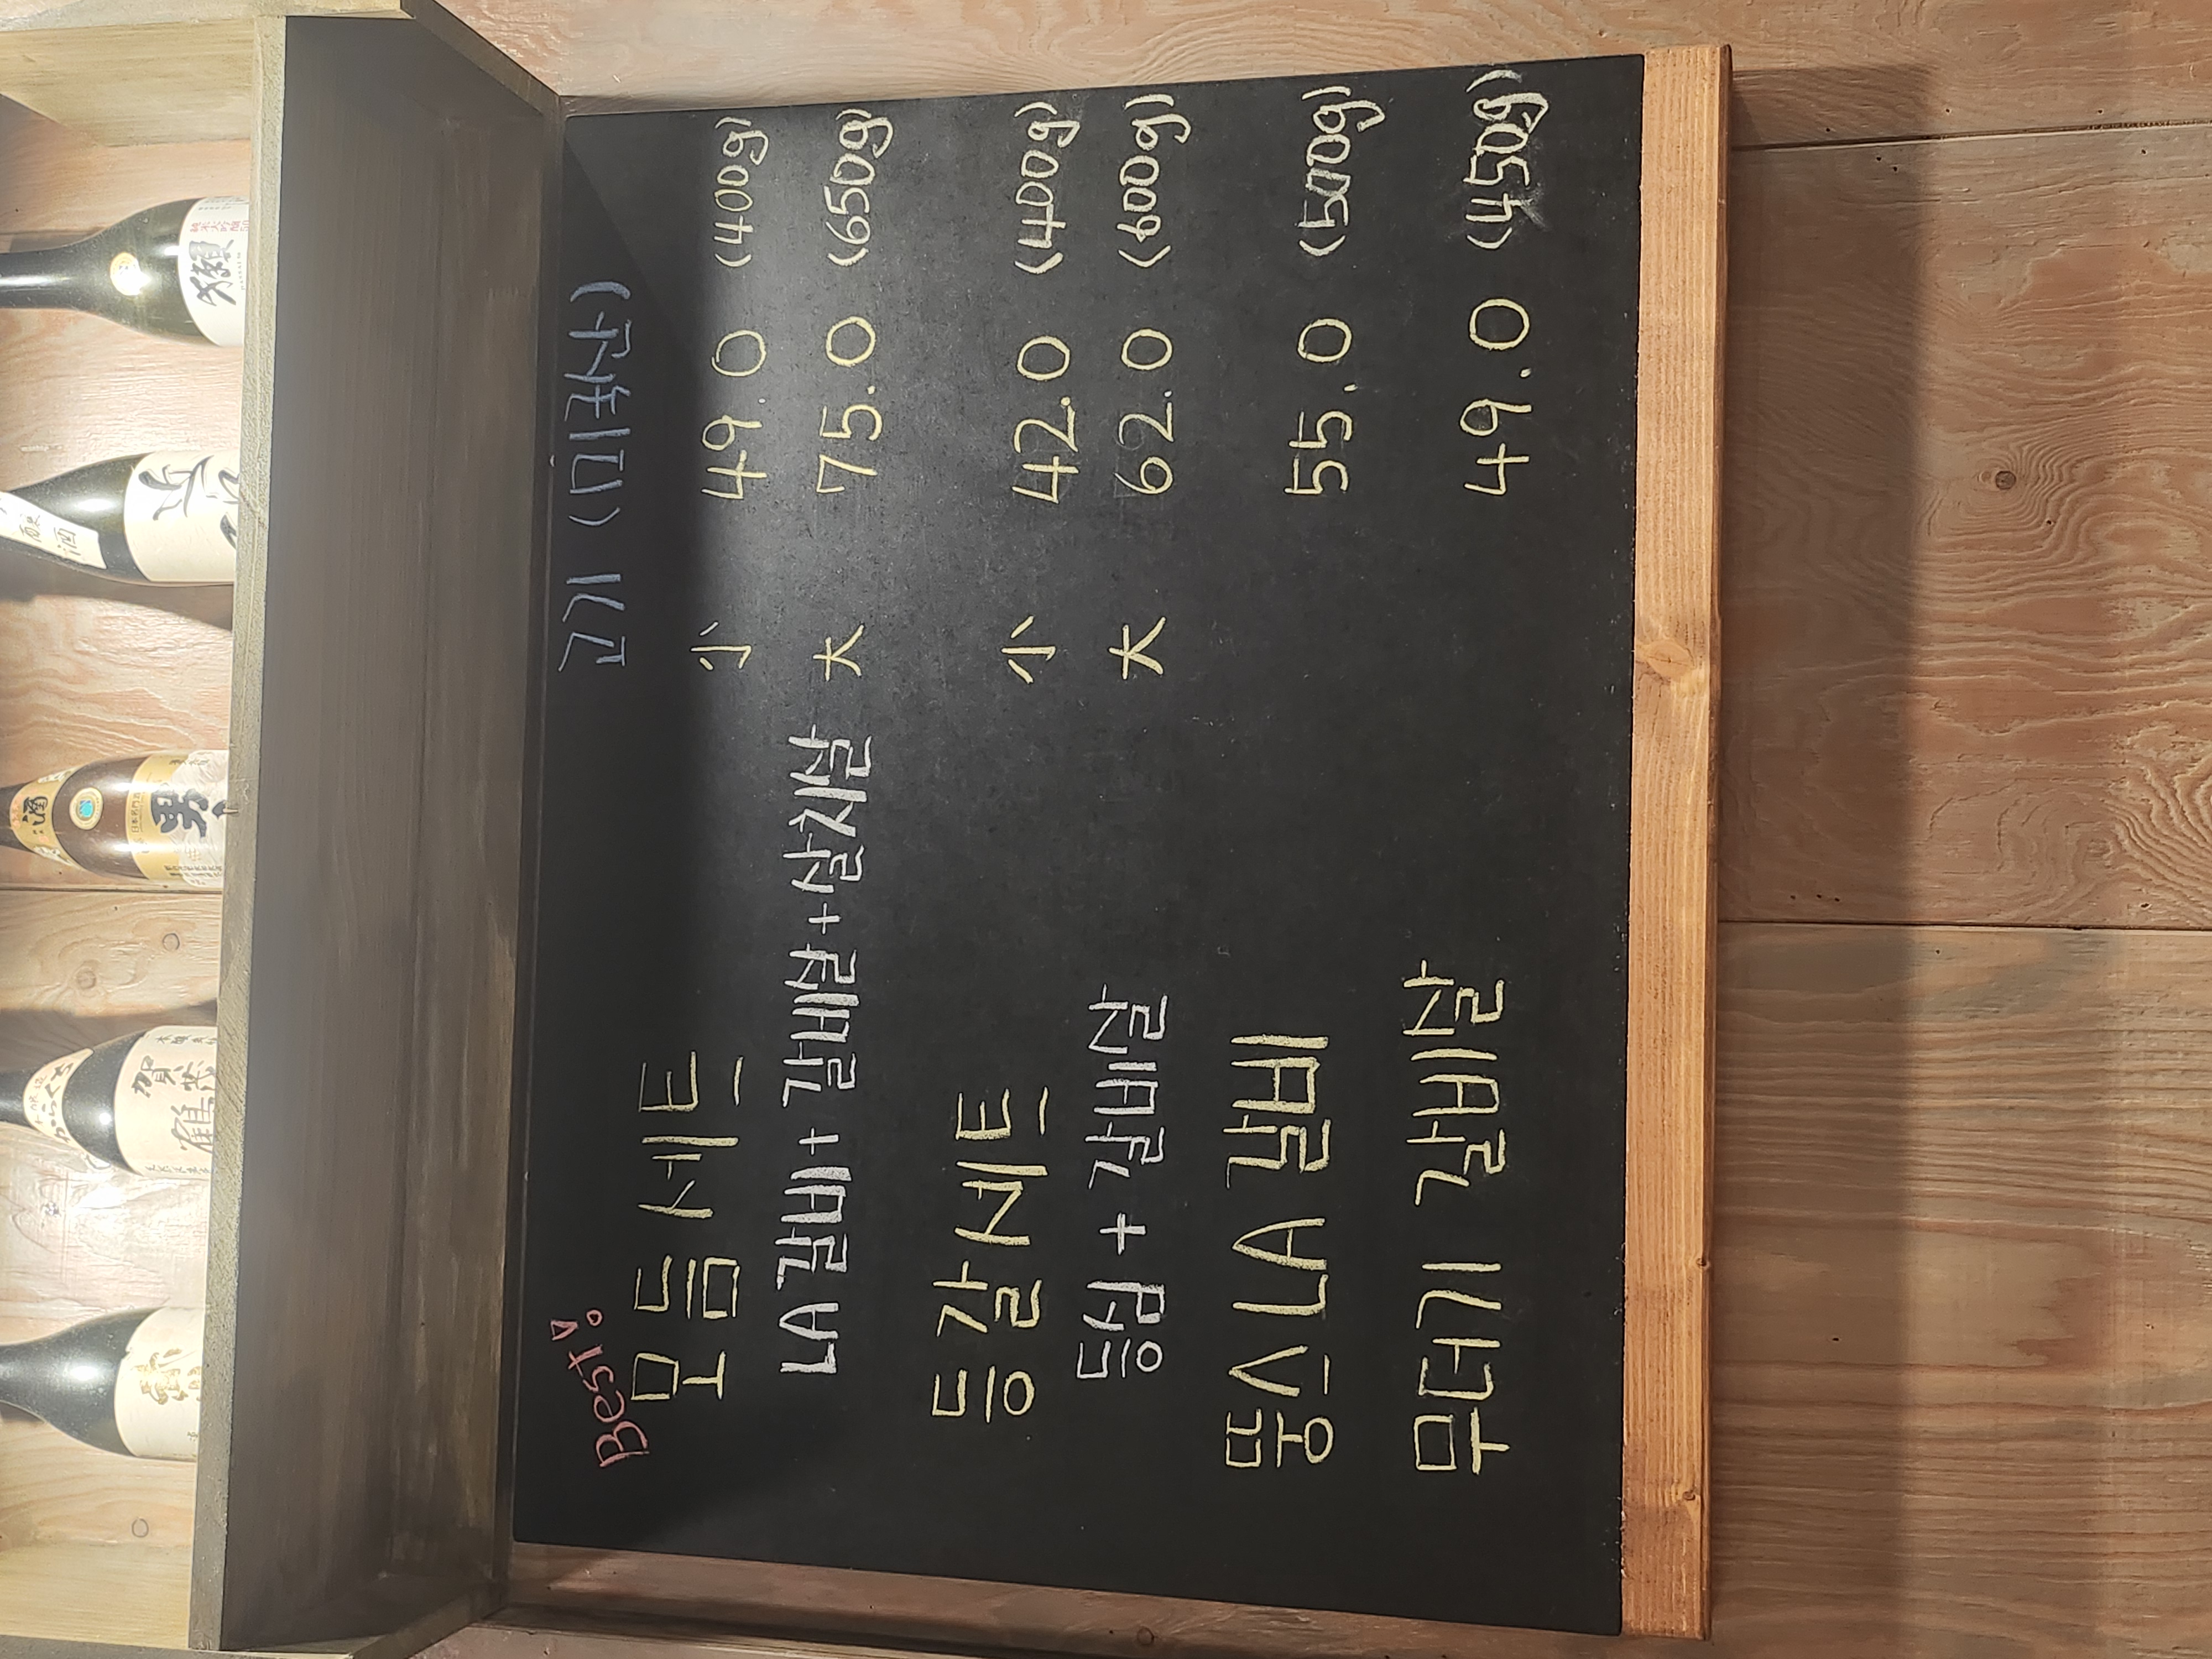 고기 (미국산)
Best!
모듬 세트 小 49.0 (400g)
LA갈비+갈비살+살치살 大 75.0 (650g)
등갈 세트 小 42.0 (400g)
등심 + 갈비살 大 62.0 (600g)
뽐스 LA 갈비 55.0 (500g)
무더기 갈비살 49.0 (450g)
獺
酒
男
賀茂
鶴